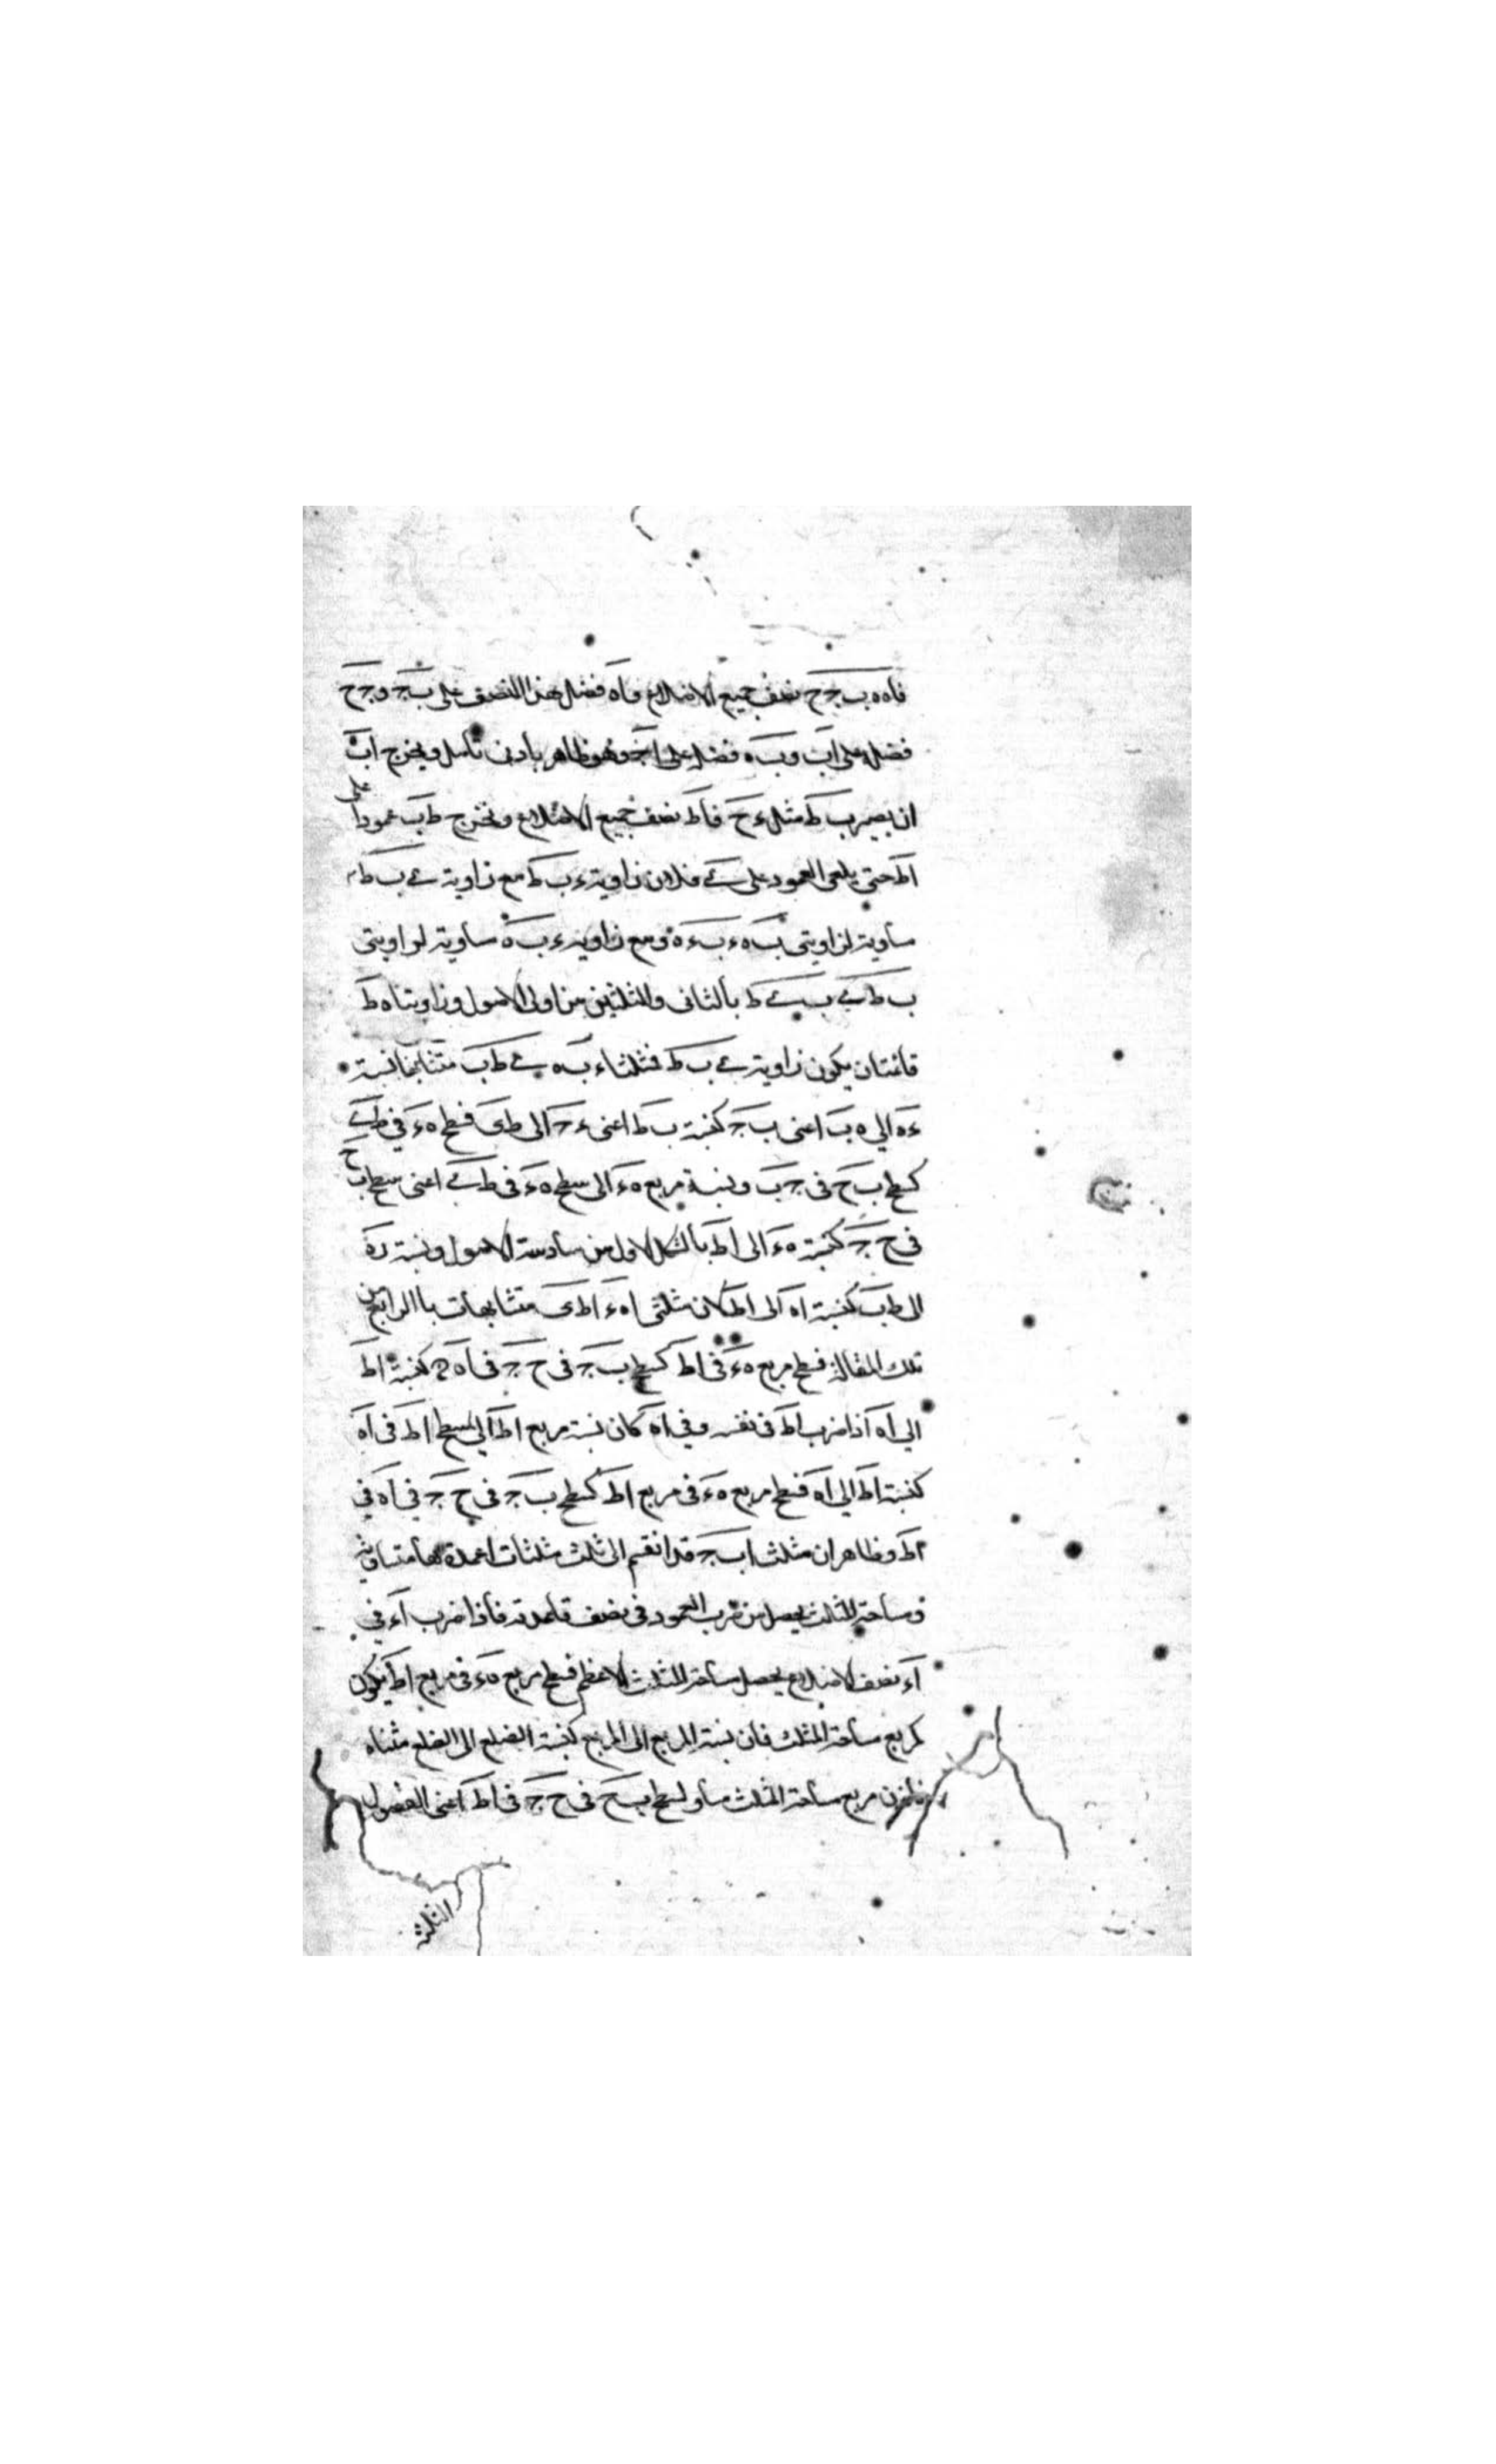 فاه ه ب ج ح نصف جميع الاضلاع فاه فضل هذا النصف على ب ج و ج ح
فضله على اب و ب ه فضله على اج وهو ظاهر بادنى تأمل ويخرج اب
ان يصير ب ط مثل ء ح فاط نصف جميع الاضلاع ونخرج ط ب عمودا على
اط حتى يلقى العمود على ے فلان زاوية ء ب ط مع زاوية ے ب ط
مساوية لزاويتى ب ه ء ب ء ه ومع زاوية ء ب ه مساوية لزاويتى
ب ط ے ب ے ط بالثانى والثلثين من اولى الاصول وزاويتا ه ط
قائمتان يكون زاوية ے ب ط فمثلثا ء ب ه ے ط ب متشابها فنسبة
ء ه الى ه ب اعنى ب ج كنسبة ب ط اعنى ء ح الى ط ى فسطح ه ء في ط ے
كسطح ب ح فى ج ب ونسبة مربع ه ء الى سطح ه ء فى ط ے اعنى سطح ب ح
فى ح ج كنسبة ه ء الى اط بالشكل الاول من سادسة الاصول ونسبة ده
الى ط ب كنسبة اه الى اط لان مثلثى اه ء اط ى متشابهات باالرابع من
تلك المقالة فسطح مربع ه ء فى اط كسطح ب ج فى ح ج فى اه كنسبة اط
الي اه اذا ضرب اط فى نفسه وفي اه كان نسبة مربع اط الي سطح اط فى اه
كنسبة اط الي اه فسطح مربع ه ء فى مربع اط كسطح ب ج فى ح ج في اه في
اط وظاهر ان مثلث اب ج قد انقسم الى ثلث مثلثات اعمدة لها متساوية
ومساحة المثلث يحصل من ضرب العمود فى نصف قاعدته فأذا ضرب اء في
اء نصف الاضلاع يحصل مساحة المثلث الاعظم فسطح مربع ه ء فى مربع اط يكون
كمربع مساحة المثلث فان نسبة المربع الى المربع كنسبة الضلع الى الضلع مثناه
فاذن مربع مساحة المثلث مساو لسطح ب ح فى ح ج فى اط اعنى الفضول
الثلثة